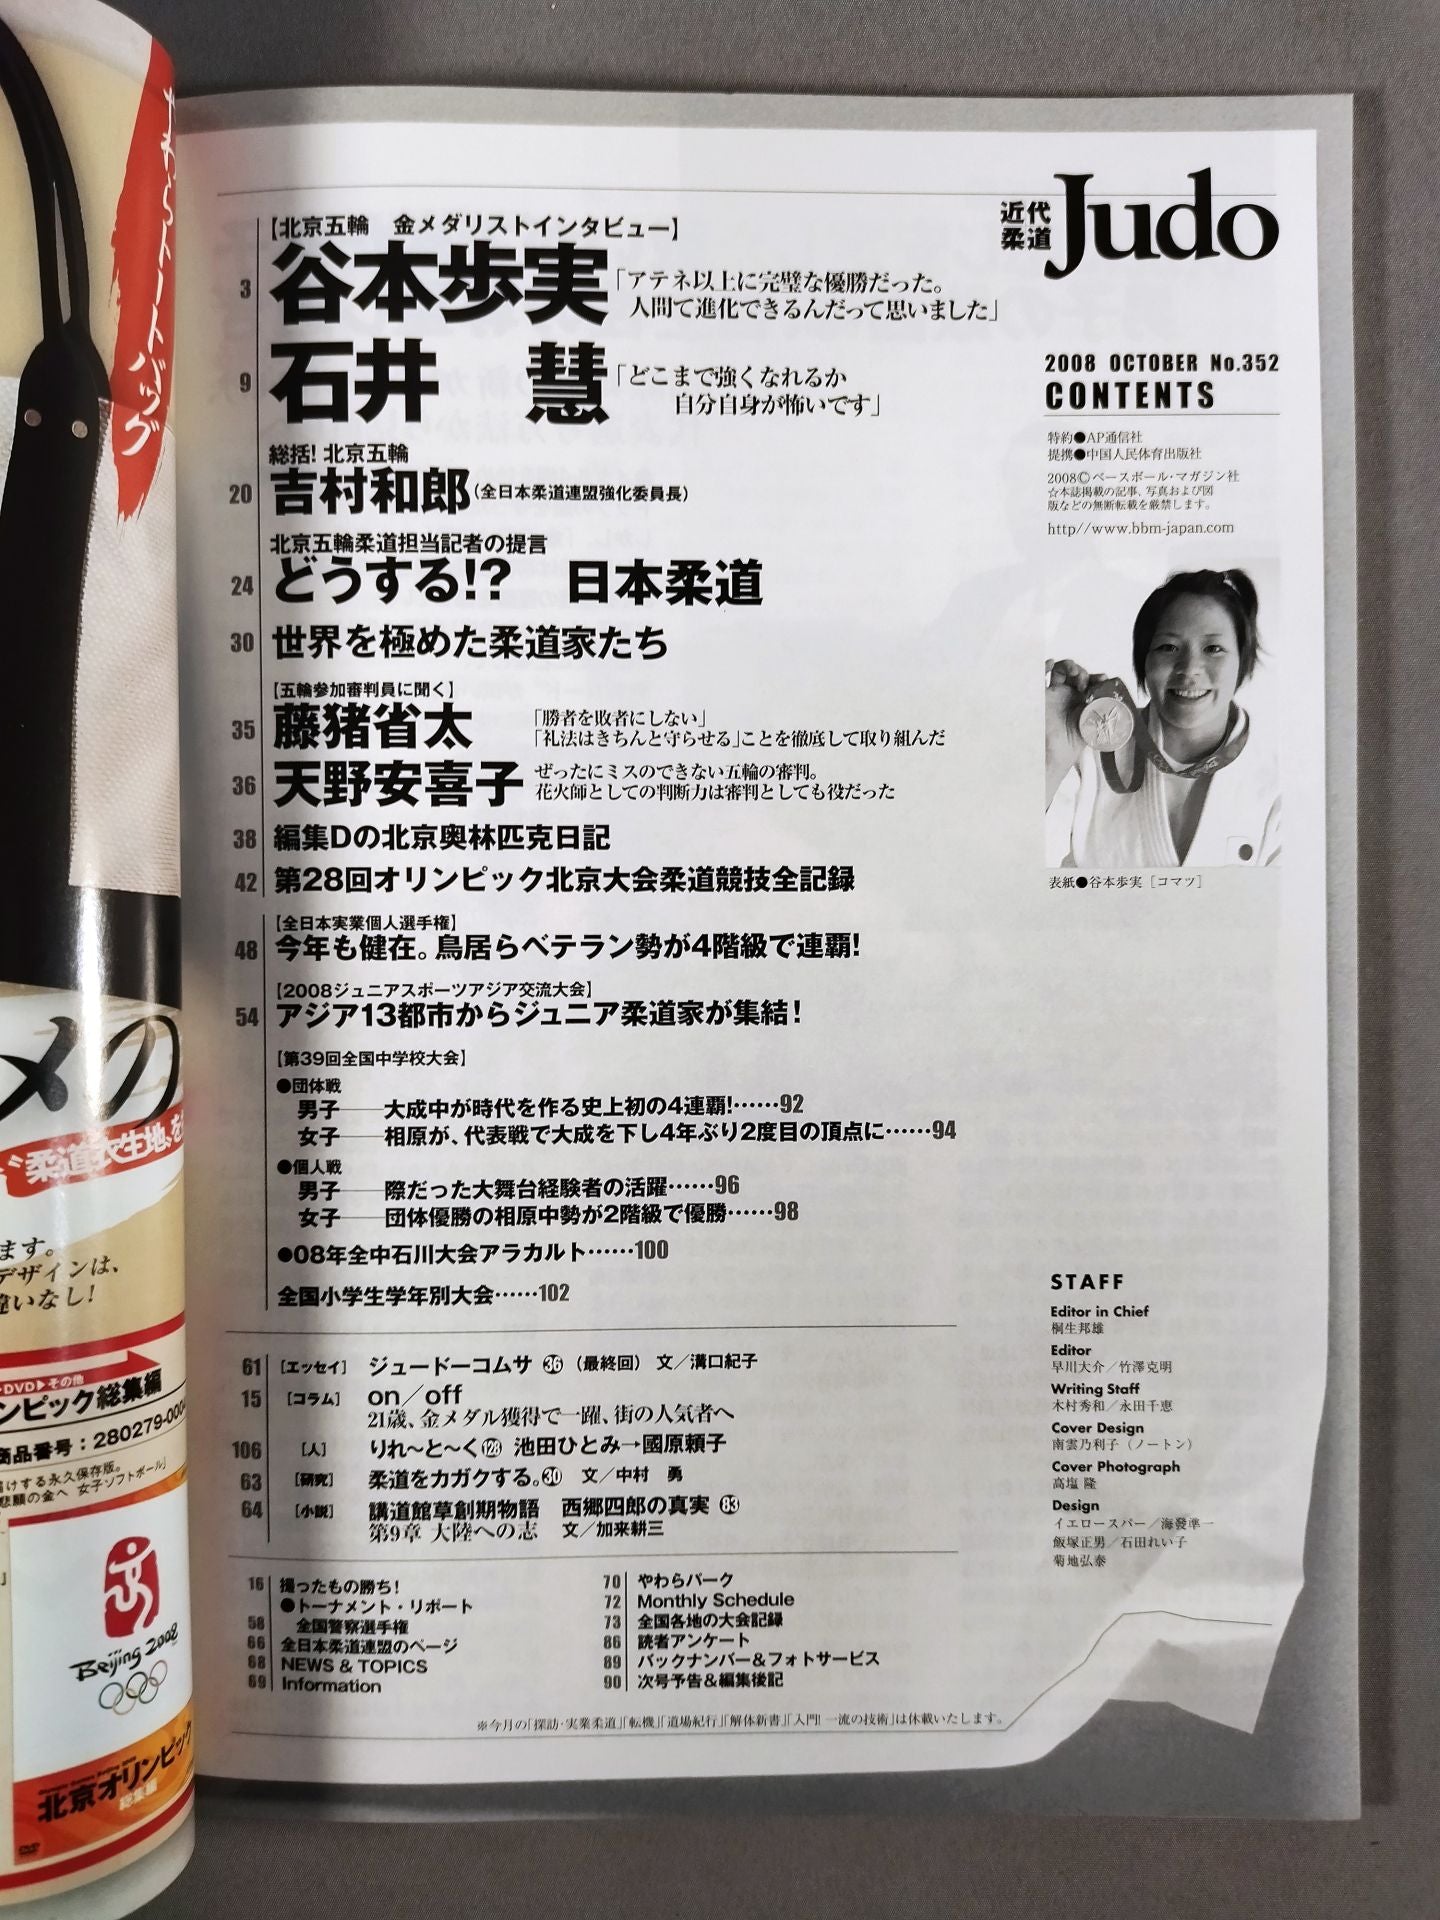 やわらトートバッグ
メの
"柔道衣生地"を
ます。
デザインは、
違いなし!
DVD▶その他
ンピック総集編
商品番号:280279-0004
届けする永久保存版。
悲願の金へ 女子ソフトボール」
Beijing 2008
北京オリンピック
総集編
近代柔道
Judo
2008 OCTOBER No.352
CONTENTS
特約●AP通信社
提携●中国人民体育出版社
2008©ベースボール・マガジン社
☆本誌掲載の記事、写真および図
版などの無断転載を厳禁します。
http//www.bbm-japan.com
表紙●谷本歩実[コマツ]
【北京五輪 金メダリストインタビュー】
3 谷本歩実 「アテネ以上に完璧な優勝だった。
人間て進化できるんだって思いました」
9 石井 慧 「どこまで強くなれるか
自分自身が怖いです」
総括! 北京五輪
20 吉村和郎(全日本柔道連盟強化委員長)
北京五輪柔道担当記者の提言
24 どうする!? 日本柔道
30 世界を極めた柔道家たち
【五輪参加審判員に聞く】
35 藤猪省太 「勝者を敗者にしない」
「礼法はきちんと守らせる」ことを徹底して取り組んだ
36 天野安喜子 ぜったにミスのできない五輪の審判。
花火師としての判断力は審判としても役だった
38 編集Dの北京奥林匹克日記
42 第28回オリンピック北京大会柔道競技全記録
【全日本実業個人選手権】
48 今年も健在。鳥居らベテラン勢が4階級で連覇!
【2008ジュニアスポーツアジア交流大会】
54 アジア13都市からジュニア柔道家が集結!
【第39回全国中学校大会】
●団体戦
男子──大成中が時代を作る史上初の4連覇!……92
女子──相原が、代表戦で大成を下し4年ぶり2度目の頂点に……94
●個人戦
男子──際だった大舞台経験者の活躍……96
女子──団体優勝の相原中勢が2階級で優勝……98
●08年全中石川大会アラカルト……100
全国小学生学年別大会……102
61 [エッセイ] ジュードーコムサ ㊱ (最終回) 文/溝口紀子
15 [コラム] on/off
21歳、金メダル獲得で一躍、街の人気者へ
106 [人] りれ〜と〜く 128 池田ひとみ→國原頼子
63 [研究] 柔道をカガクする。㉚ 文/中村 勇
64 [小説] 講道館草創期物語 西郷四郎の真実 83
第9章 大陸への志 文/加来耕三
16 撮ったもの勝ち!
●トーナメント・リポート
58 全国警察選手権
66 全日本柔道連盟のページ
68 NEWS & TOPICS
69 Information
70 やわらパーク
72 Monthly Schedule
73 全国各地の大会記録
86 読者アンケート
89 バックナンバー&フォトサービス
90 次号予告&編集後記
※今月の「探訪・実業柔道」「転機」「道場紀行」「解体新書」「入門! 一流の技術」は休載いたします。
STAFF
Editor in Chief
桐生邦雄
Editor
早川大介/竹澤克明
Writing Staff
木村秀和/永田千恵
Cover Design
南雲乃利子(ノートン)
Cover Photograph
高塩 隆
Design
イエロースパー/海發準一
飯塚正男/石田れい子
菊地弘泰